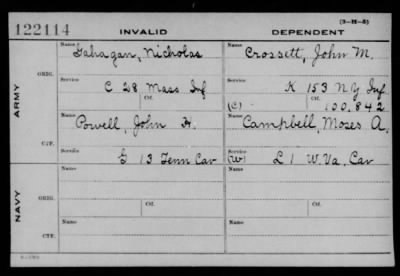 (3-H-5)
122114 INVALID DEPENDENT
Name Gahagan, Nicholas Name Crossett, John M.
ARMY
ORIG.
Service C 28 Mass Inf Service K 153 N Y Inf
Ctf. Ctf.
(C) 100.842
Name Powell, John H. Name Campbell, Moses A.
CTF.
Service G 13 Tenn Cav Service (W) L 1 W. Va. Cav
NAVY
Name Name
ORIG.
Ctf. Ctf.
Name Name
CTF.